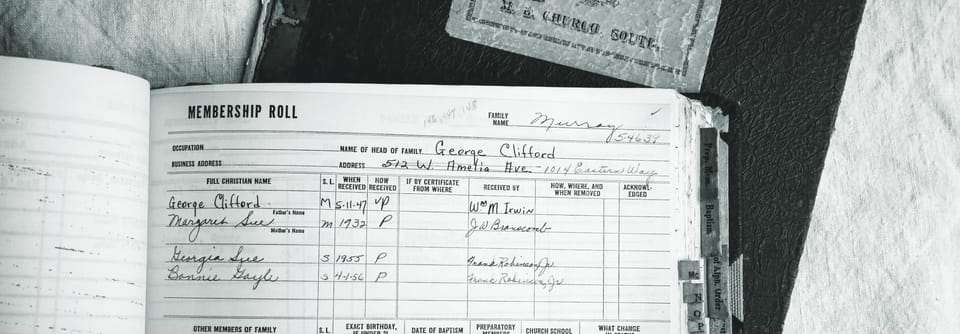 M. E. CHURCH SOUTH.
MEMBERSHIP ROLL
146 147 148
FAMILY NAME Murray
54639
OCCUPATION NAME OF HEAD OF FAMILY George Clifford
BUSINESS ADDRESS ADDRESS 512 W. Amelia Ave. 1014 Eastern Way
FULL CHRISTIAN NAME S. L. WHEN RECEIVED HOW RECEIVED IF BY CERTIFICATE FROM WHERE RECEIVED BY HOW, WHERE, AND WHEN REMOVED ACKNOWL- EDGED
George Clifford M 5-11-47 VP Wm M Irwin
Father's Name
Margaret Sue m 1932 P J W Branscomb
Mother's Name
Georgia Sue S 1955 P Frank Robinson, Jr
Bonnie Gayle S 4-1-56 P Frank Robinson, Jr
OTHER MEMBERS OF FAMILY S. L. EXACT BIRTHDAY, IF UNDER 21 DATE OF BAPTISM PREPARATORY MEMBERS CHURCH SCHOOL WHAT CHANGE
Prep. Mem.
Baptism
Alph. Order
Mc
N
O
P